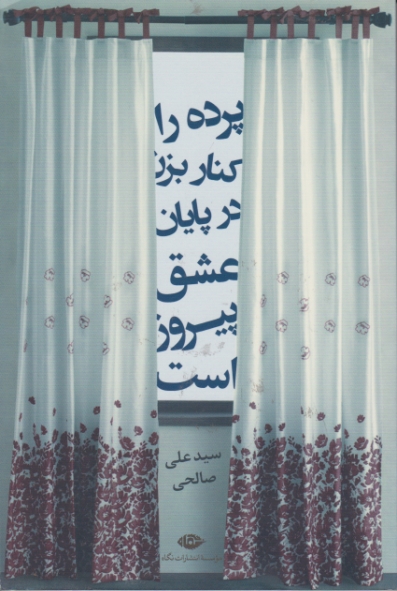 پرده را
کنار بزن
در پایان
عشق
پیروز
است
سید علی
صالحی
موسسه انتشارات نگاه